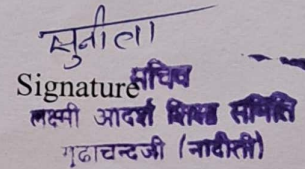 सुनीता
Signature सचिव
लक्ष्मी आदर्श शिक्षा समिति
गुढाचन्दजी (नादौती)